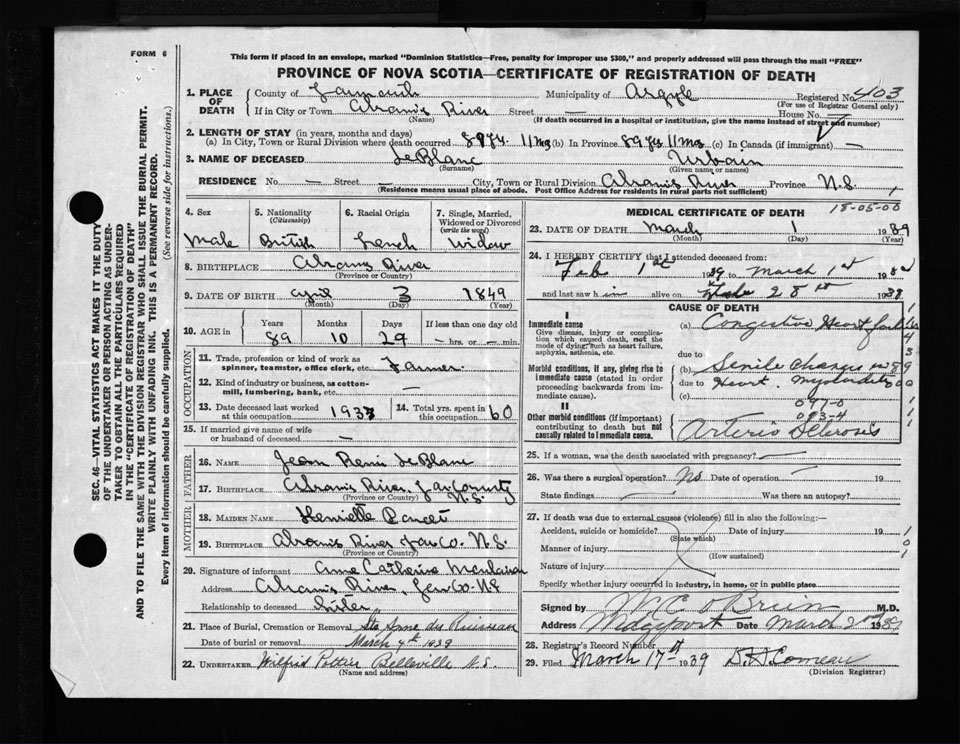 FORM 6
This form if placed in an envelope, marked "Dominion Statistics—Free, penalty for improper use $300," and properly addressed will pass through the mail "FREE"
PROVINCE OF NOVA SCOTIA—CERTIFICATE OF REGISTRATION OF DEATH
SEC. 46—VITAL STATISTICS ACT MAKES IT THE DUTY
OF THE UNDERTAKER OR PERSON ACTING AS UNDER-
TAKER TO OBTAIN ALL THE PARTICULARS REQUIRED
IN THE "CERTIFICATE OF REGISTRATION OF DEATH"
AND TO FILE THE SAME WITH THE DIVISION REGISTRAR WHO SHALL ISSUE THE BURIAL PERMIT.
WRITE PLAINLY WITH UNFADING INK. THIS IS A PERMANENT RECORD.
Every item of information should be carefully supplied. (See reverse side for instructions.)
1. PLACE OF DEATH County of Yarmouth Municipality of Argyle Registered No. 403
(For use of Registrar General only)
If in City or Town River Street — House No. —
(Name) (If death occurred in a hospital or institution, give the name instead of street and number)
2. LENGTH OF STAY (in years, months and days)
(a) In City, Town or Rural Division where death occurred 89 Yr. 11 Mos (b) In Province 89 Yrs 11 Mos (c) In Canada (if immigrant) —
3. NAME OF DECEASED LeBlanc Urbain
(Surname) (Given name or names)
RESIDENCE No. — Street — City, Town or Rural Division River Province N.S.
(Residence means usual place of abode. Post Office Address for residents in rural parts not sufficient)
4. Sex 5. Nationality (Citizenship) 6. Racial Origin 7. Single, Married, Widowed or Divorced (write the word)
Male British French Widow
8. BIRTHPLACE River
(Province or Country)
9. DATE OF BIRTH April 3 1849
(Month) (Day) (Year)
10. AGE in Years Months Days If less than one day old
89 10 29 — hrs. or — min.
OCCUPATION
11. Trade, profession or kind of work as spinner, teamster, office clerk, etc. Farmer
12. Kind of industry or business, as cotton-mill, lumbering, bank, etc. —
13. Date deceased last worked at this occupation 193 14. Total yrs. spent in this occupation 60
15. If married give name of wife or husband of deceased —
FATHER
16. NAME Jean Remi LeBlanc
17. BIRTHPLACE River, Yar County N.S.
(Province or Country)
MOTHER
18. MAIDEN NAME
19. BIRTHPLACE River Yar Co. N.S.
(Province or Country)
20. Signature of informant Anne Catherine
Address River, Yar Co. N.S.
Relationship to deceased Sister
21. Place of Burial, Cremation or Removal Ste Anne du Ruisseau
Date of burial or removal March 4th 1939
22. UNDERTAKER Wilfrid Pottier Belleville N.S.
(Name and address)
18-05-00
MEDICAL CERTIFICATE OF DEATH
23. DATE OF DEATH March 1 1939
(Month) (Day) (Year)
24. I HEREBY CERTIFY that I attended deceased from:
Feb 1st 1939 to March 1st 193
and last saw him alive on Feb 28th 193
CAUSE OF DEATH
I
Immediate cause
Give disease, injury or complication which caused death, not the mode of dying, such as heart failure, asphyxia, asthenia, etc.
(a) Congestive Heart failure
due to
Morbid conditions, if any, giving rise to immediate cause (stated in order proceeding backwards from immediate cause).
(b) Senile changes in
due to Heart.
(c)
097-0
093-4
II
Other morbid conditions (if important) contributing to death but not causally related to immediate cause.
Arterio Sclerosis
25. If a woman, was the death associated with pregnancy? —
26. Was there a surgical operation? No Date of operation — 19
State findings — Was there an autopsy? —
27. If death was due to external causes (violence) fill in also the following:—
Accident, suicide or homicide? Date of injury 19
(State which)
Manner of injury
(How sustained)
Nature of injury
Specify whether injury occurred in industry, in home, or in public place
Signed by M.C. O'Brien M.D.
Address Date March 2nd 1939
28. Registrar's Record Number
29. Filed March 17th 1939 D.H. Comeau
(Division Registrar)